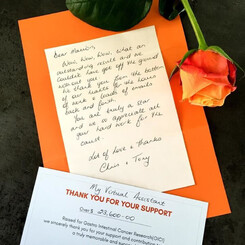 Dear Maureen,
Wow, Wow, Wow, what an
outstanding result and we
couldn't have got off the ground
without you. From the bottom
of our hearts for the hours
of work & loads of emails
back and forth.
You are truly a star
and we so appreciate all
your hard work for the
cause.
Lots of love & thanks
Chris & Tony
My Virtual Assistant
THANK YOU FOR YOUR SUPPORT
Over $ 23,600-00
Raised for Gastro Intestinal Cancer Research (GIC)
we sincerely thank you for your support and contribution to
a truly memorable and